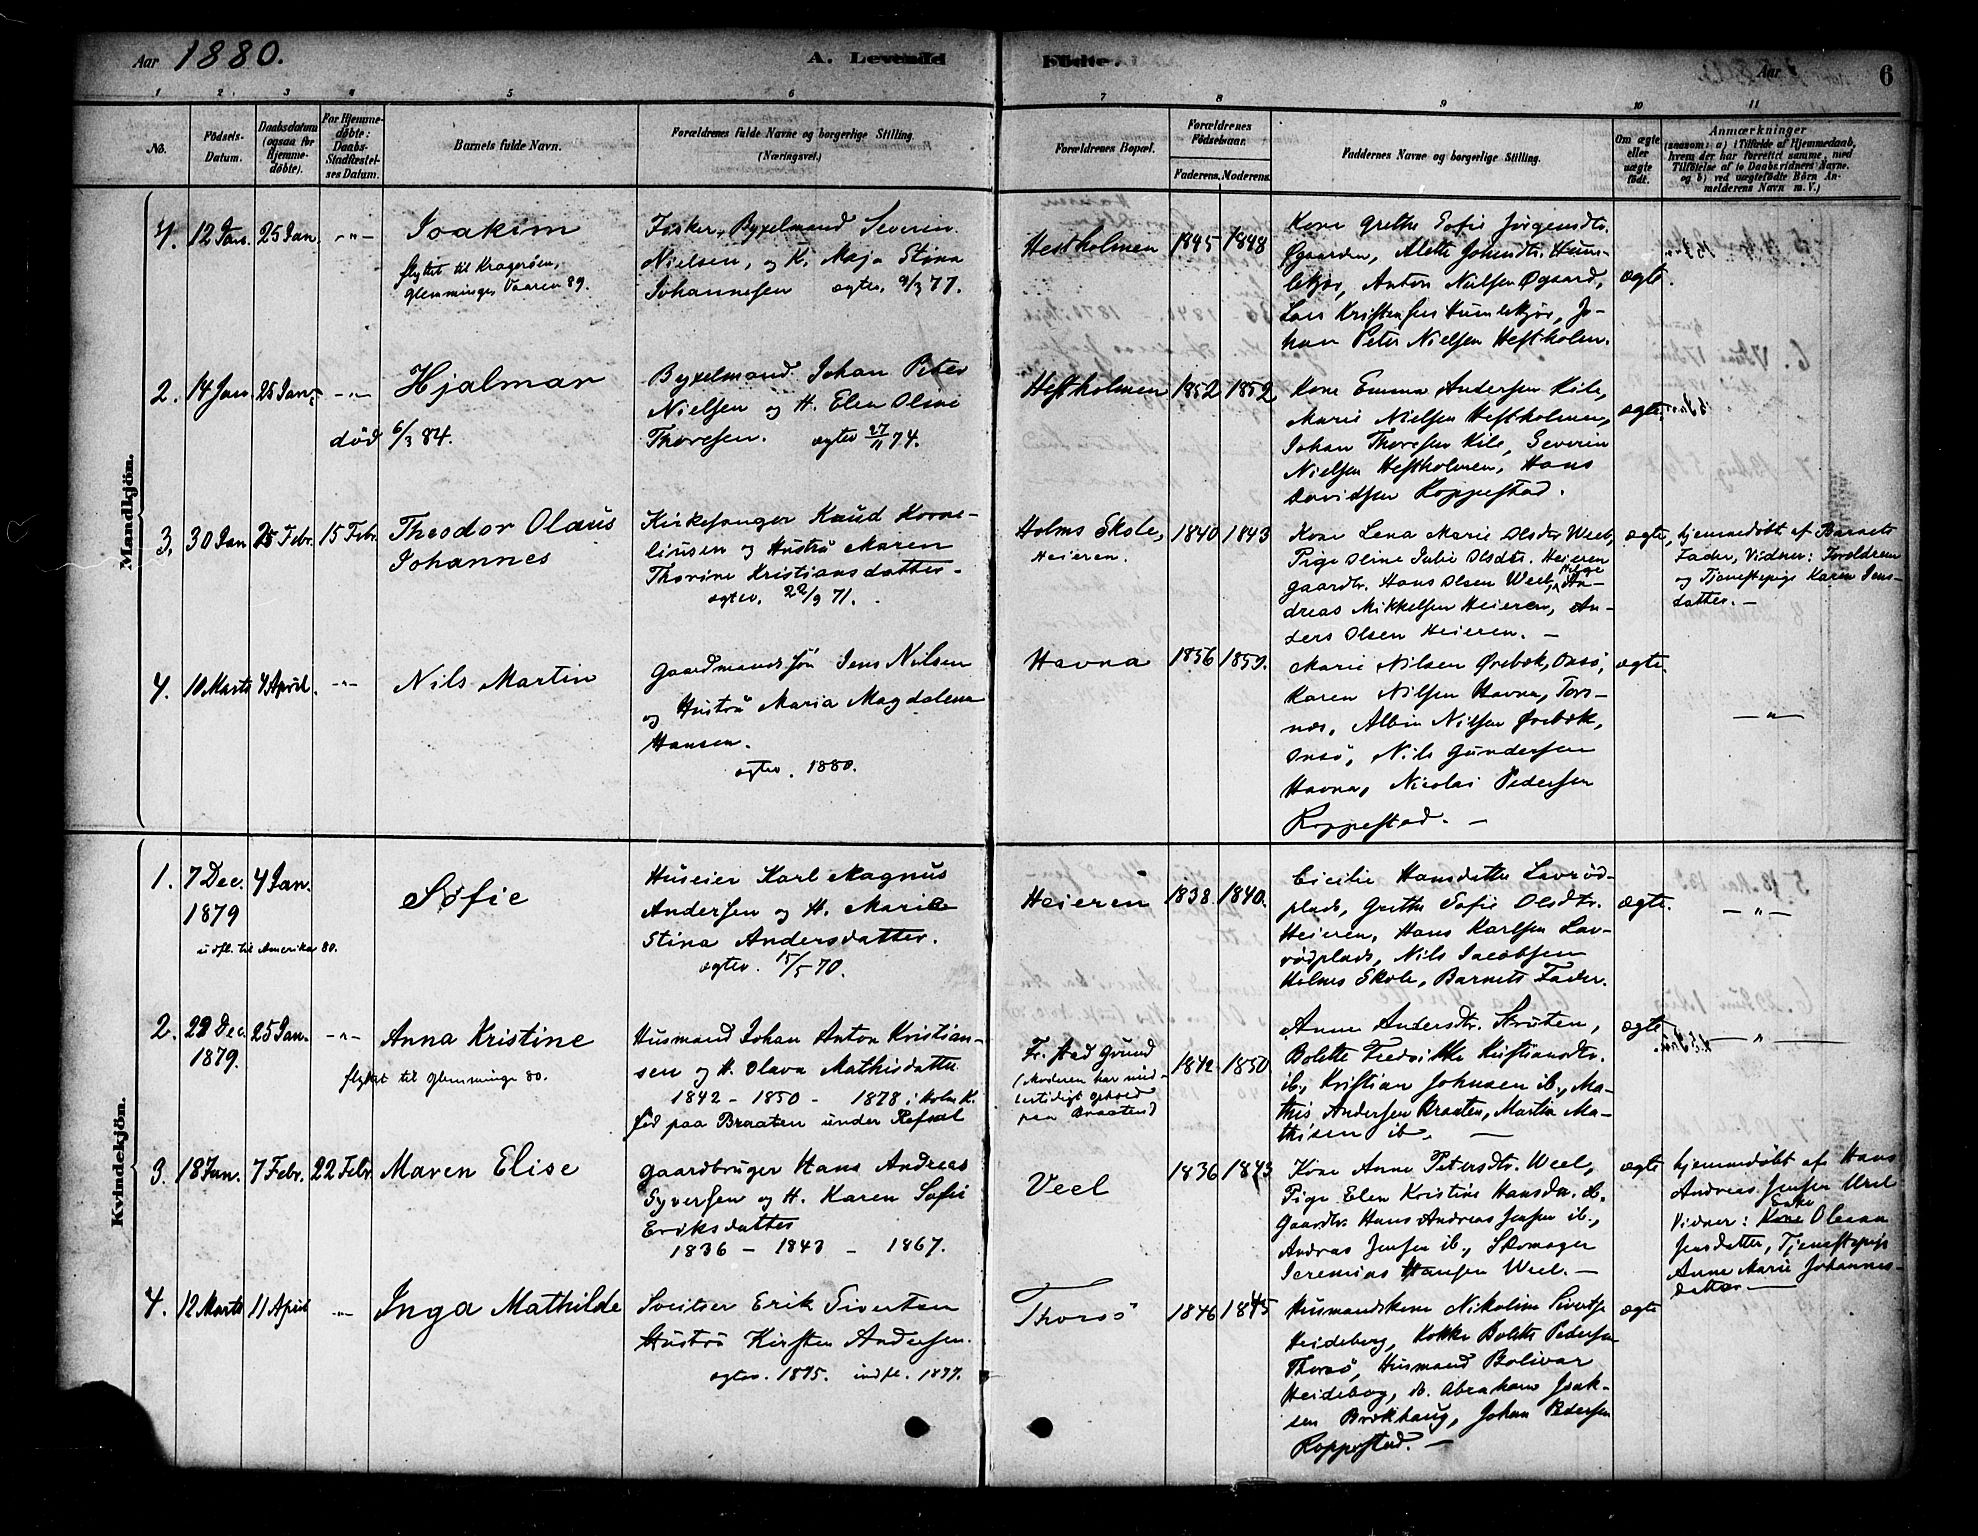 Aar 1880. A. Levende
Fødte. Aar 6
1 2 3 4 5 6 7 8 9 10 11
No.
Födsels-Datum.
Daabsdatum (ogsaa for Hjemme-døbte).
For Hjemme-døbte: Daabs-Stadfæstel-ses Datum.
Barnets fulde Navn.
Forældrenes fulde Navne og borgerlige Stilling. (Næringsvei.)
Forældrenes Bopæl.
Forældrenes Födselsaar.
Faderens. Moderens.
Faddernes Navne og borgerlige Stilling.
Om ægte eller uægte født.
Anmærkninger
(saasom: a) i Tilfælde af Hjemmedaab,
hvem der har forrettet samme, med
Tilføielse af to Daabsvidners Navne.
og b) ved uægtefødte Börn An-
melderens Navn m. V.)
Mandkjön.
1. 12 Jan. 25 Jan. -"-
Joakim
flyttet til Kragerøen,
Glemminge, Vaaren 89.
Fisker, Byxelmand Severin
Nielsen, og H. Maja Stina
Johannesen ægtev. 9/3 77.
Hestholmen 1845 1848
Kone Grethe Sofie Jørgensdtr.
Øgaarden, Alette Johnsdtr. Hum-
lekjær, Anton Nielsen Øgaard,
Lars Kristensen Humlekjør, Jo-
han Peter Nielsen Hestholm.
ægte.
2. 14 Jan. 25 Jan. -"-
Hjalmar
død 6/3 84.
Byxelmand Johan Peter
Nielsen og H. Elen Oline
Thoresen. ægtev 27/11 74.
Hestholmen 1852 1852
Kone Emma Andersen Kile,
Marie Nielsen Hestholmen,
Johan Thoresen Kile, Severin
Nielsen Hestholmen, Hans
Davidsen Roppestad.
ægte.
3. 30 Jan 25 Febr. 15 Febr.
Theodor Olaus
Johannes
Kirkesanger Knud Korne-
liusen og Hustru Maren
Thorine Kristiansdatter.
ægtev. 22/9 71.
Holms Skole,
Heieren.
1840 1843
Kone Lena Marie Olsdtr Weel,
Pige Oline Julie Olsdtr. Heieren
gaardbr. Hans Olsen Weel, An-
dreas Mikkelsen Heieren, An-
ders Olsen Heieren. —
ægte,
hjemmedøbt af Barnets
Fader, Vidner: Forældrene
og Tjenestepige Karen Jens-
datter. —
4. 10 Marts 4 April. -"-
Nils Martin
Gaardmandssøn Jens Nilsen
og Hustru Maria Magdalena
Hansen.
ægtev. 1880.
Havna 1856
Marie Nilsen Ørebæk, Onsø,
Karen Nilsen Havna, Tors-
næs, Albin Nilsen Ørebæk,
Onsø, Nils Gundersen
Havna, Nicolai Pedersen
Roppestad. —
ægte
—"—
Kvindekjön.
1. 7 Dec. 1879 4 Jan.
udfl. til Amerika 80.
Sofie
Huseier Karl Magnus
Andersen og H. Marie
Stina Andersdatter.
ægtev. 15/5 70.
Heieren 1838. 1840.
Cicilie Hansdatter Lavrød-
plads, Grethe Sofie Olsdtr.
Heieren, Hans Karlsen Lav-
rødplads, Nils Jacobsen
Holmes Skole, Barnets Fader.
ægte.
—"—
2. 22 Dec. 1879. 25 Jan. -"-
Anna Kristine
flyttet til Glemminge 80.
Husmand Johan Anton Kristian-
sen og H. Olava Mathisdatter
1842 – 1850 – 1878 i Holm K.
Fød paa Braaten under Refsal
Fr. stad Grund
(Moderen har mid-
lertidigt ophold
paa Braaten)
1842 1850
Anne Andersdtr. Skruten,
Bolette Fredrikke Kristiansdtr.
ib., Kristian Johnsen ib., Ma-
this Andersen Braaten, Martin Ma-
thisen ib. —
ægte
—"—
3. 18 Jan. 7 Febr. 22 Febr.
Maren Elise
Gaardbruger Hans Andreas
Syversen og H. Karen Sofie
Eriksdatter
1836 – 1843 – 1867.
Veel 1836 1843
Kone Anne Petersdtr. Weel,
Pige Elen Kristine Hansdtr. ib.
Gaardbr. Hans Andreas Jensen ib.,
Andreas Jensen ib., Skomager
Jeremias Hansen Weel. —
ægte
hjemmedøbt af Hans
Andreas Jensen Veel
Vidner: Kone Enke Oleana
Jensdatter, Tjenestepige
Anne Marie Johannes-
datter —
4. 12 Marts 11 April -"-
Inga Mathilde
Sveitser Erik Sivertsen
Hustru Kirsten Andersen.
ægtev. 1875. indfl. 1877.
Thorsø 1846 1845
Husmandskone Nikoline Sivertse
Heideberg, Kokke Bolette Pedersen
Thorsø, Husmand Bolivar
Heideberg, do. Abraham Isak-
sen Brækhaug, Johan Pedersen
Roppestad. —
ægte